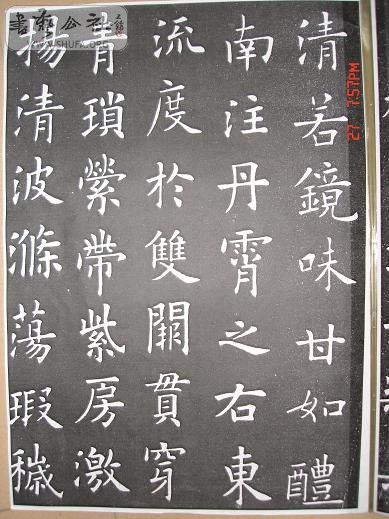 清若鏡味甘如醴
南注丹霄之右東
流度於雙闕貫穿
青瑣縈帶紫房激
揚清波滌蕩瑕穢
27 7:57PM
WWW.SHUFA.ORG